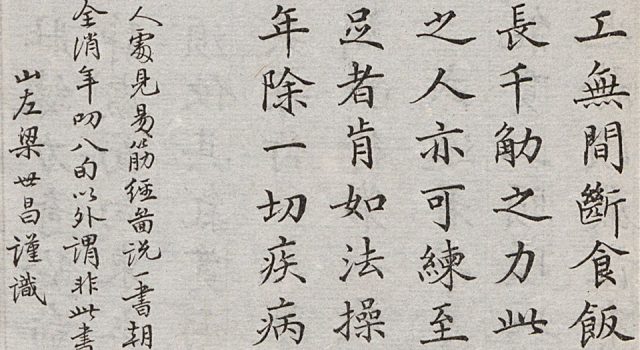 工無間斷食飯
長千觔之力此
之人亦可練至
足者肯如法操
年除一切疾病
人處見易筋經圖説一書朝
全消年叨八旬以外謂非此書
山左梁世昌謹識